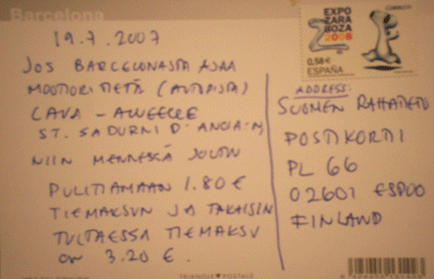 Barcelona
19.7.2007
JOS BARCELONASTA AJAA
MOOTTORITIETÄ (AUTOPISTA)
CAVA - ALUEELLE
ST. SADURNI D'ANOIA:N
NIIN MENNESSÄ JOUTUU
PULITTAMAAN 1.80 €
TIEMAKSUN JA TAKAISIN
TULTAESSA TIEMAKSU
ON 3.20 €.
EXPO
ZARA
GOZA
2008
0,58€
ESPAÑA
CORREOS
ADDRESS:
SUOMEN RAHATIETO
POSTIKORTTI
PL 66
02601 ESPOO
FINLAND
TRIANGLE POSTALS